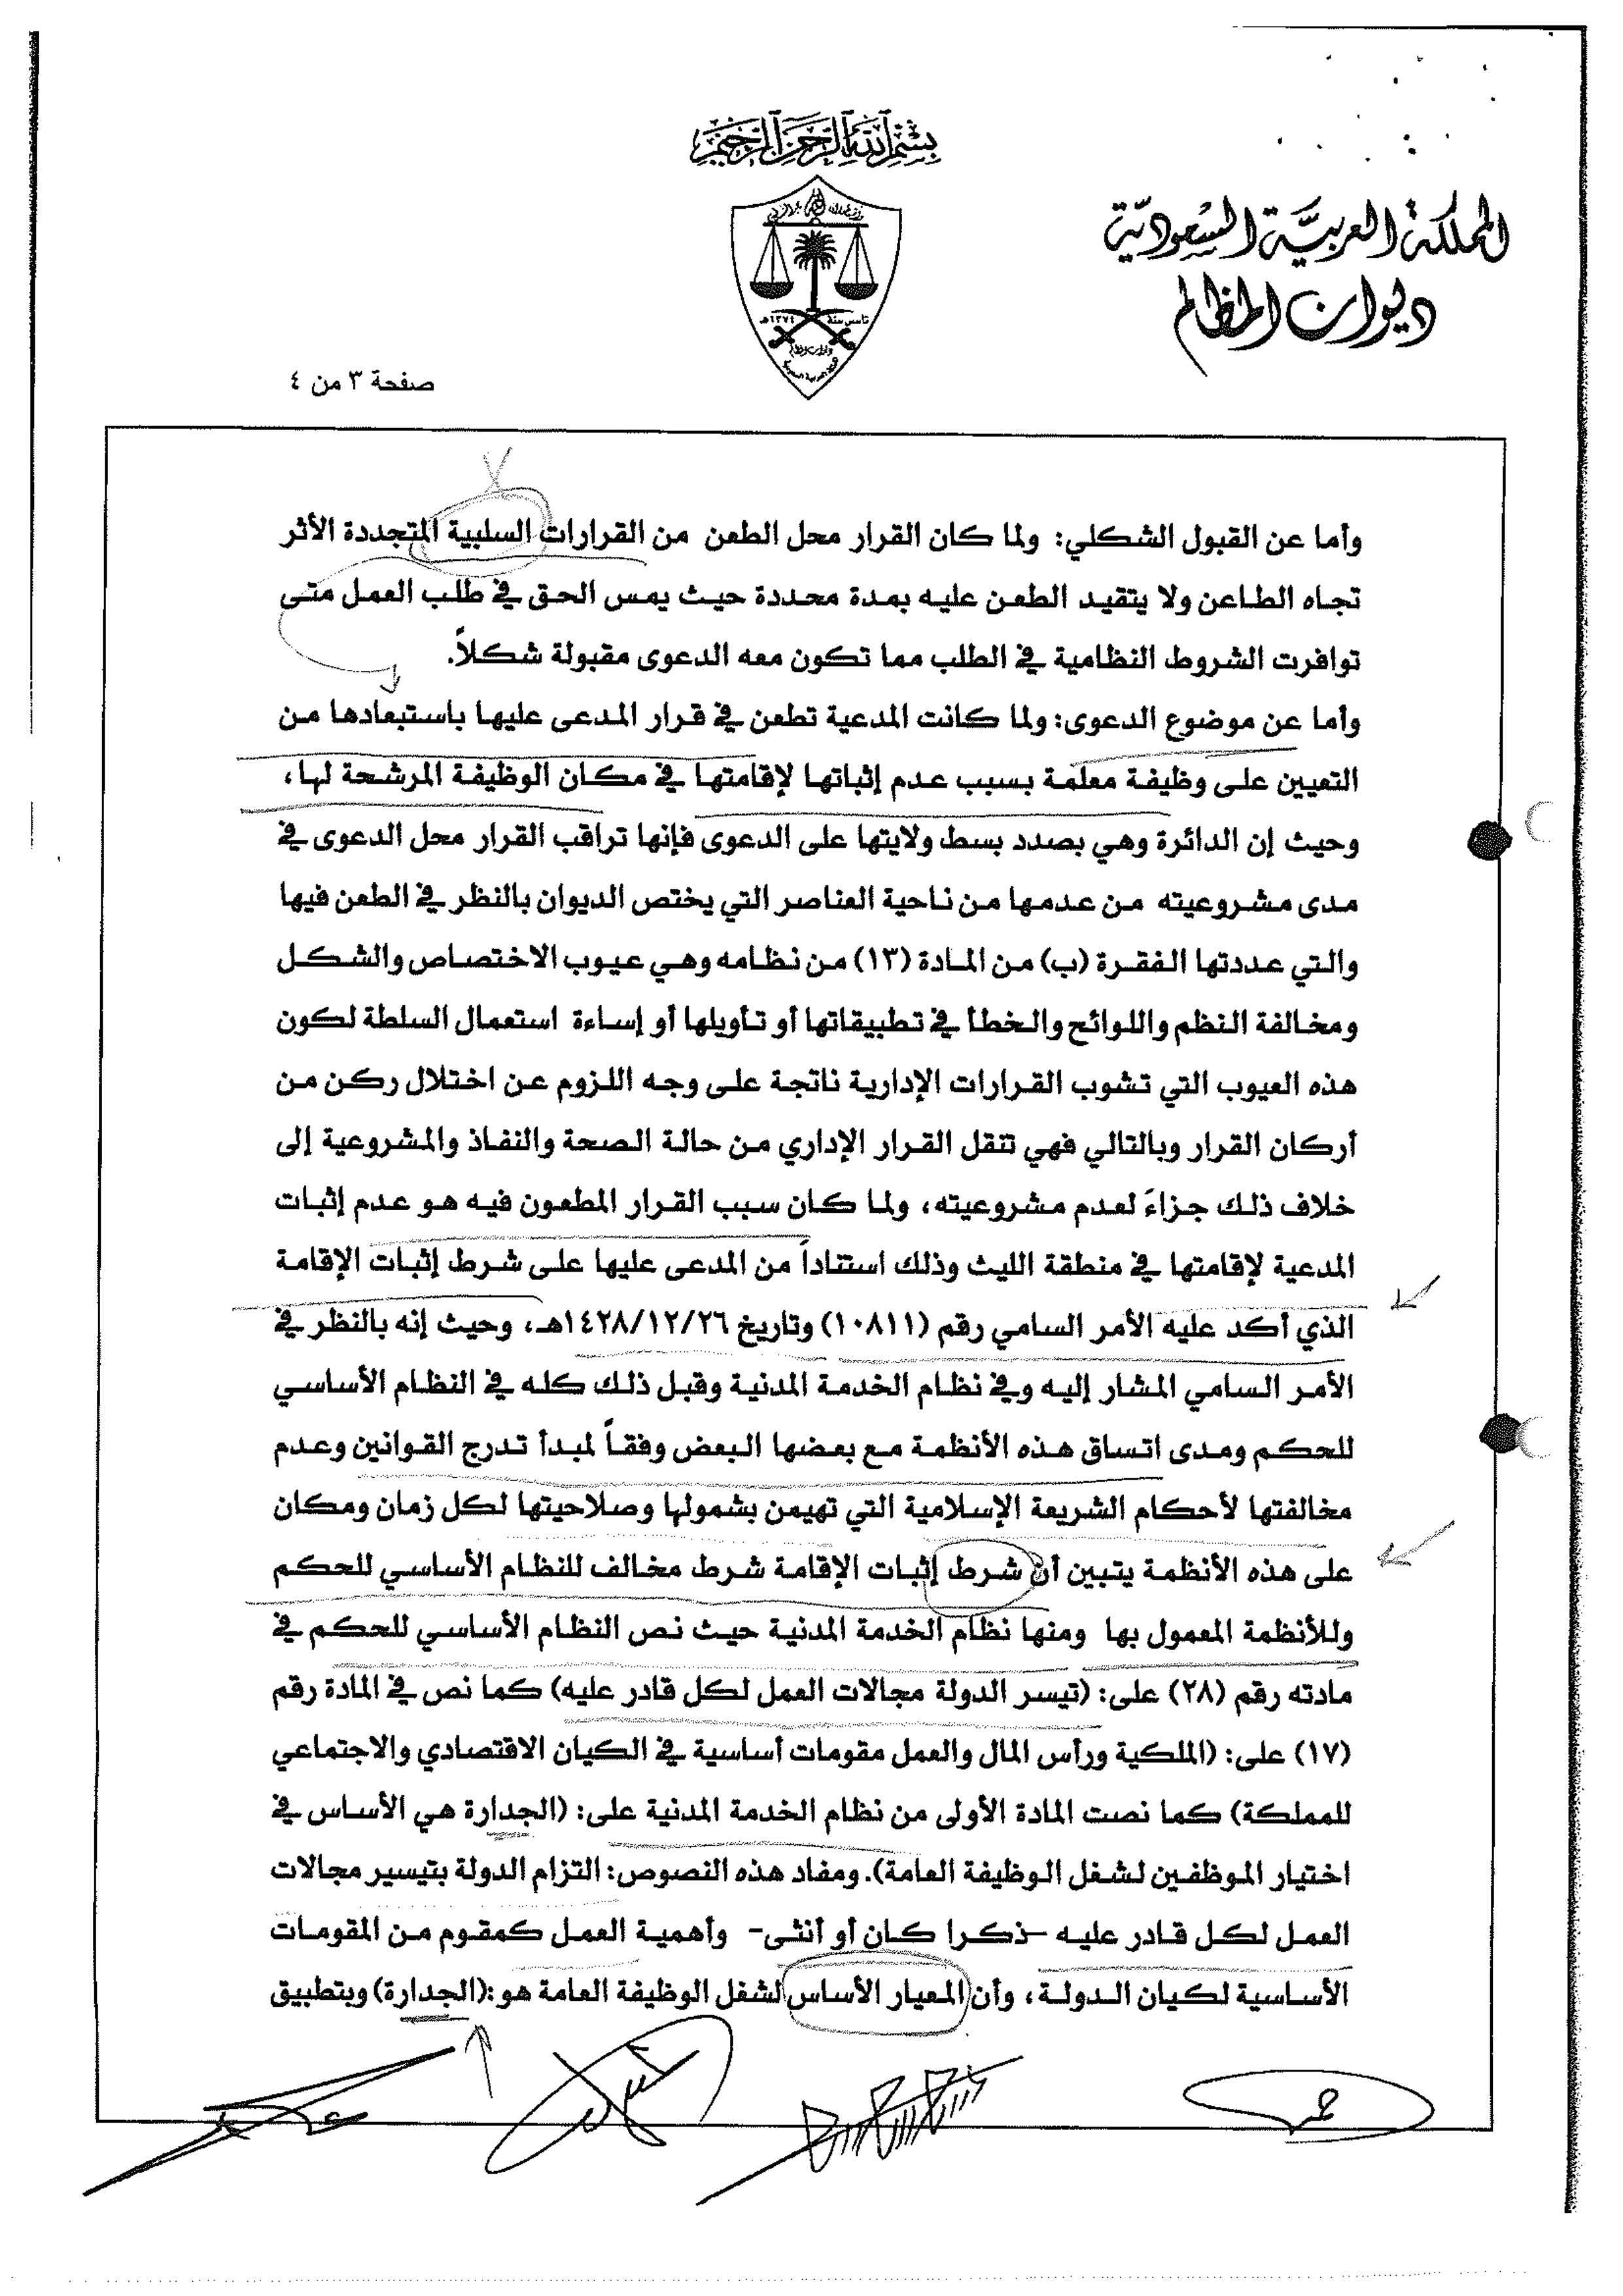 بسم الله الرحمن الرحيم
المملكة العربية السعودية
ديوان المظالم
تأسس سنة ١٣٧٤هـ
صفحة ٣ من ٤
وأما عن القبول الشكلي: ولما كان القرار محل الطعن من القرارات السلبية المتجددة الأثر
تجاه الطاعن ولا يتقيد الطعن عليه بمدة محددة حيث يمس الحق في طلب العمل متى
توافرت الشروط النظامية في الطلب مما تكون معه الدعوى مقبولة شكلاً.
وأما عن موضوع الدعوى: ولما كانت المدعية تطعن في قرار المدعى عليها باستبعادها من
التعيين على وظيفة معلمة بسبب عدم إثباتها لإقامتها في مكان الوظيفة المرشحة لها،
وحيث إن الدائرة وهي بصدد بسط ولايتها على الدعوى فإنها تراقب القرار محل الدعوى في
مدى مشروعيته من عدمها من ناحية العناصر التي يختص الديوان بالنظر في الطعن فيها
والتي عددتها الفقرة (ب) من المادة (١٣) من نظامه وهي عيوب الاختصاص والشكل
ومخالفة النظم واللوائح والخطأ في تطبيقاتها أو تأويلها أو إساءة استعمال السلطة لكون
هذه العيوب التي تشوب القرارات الإدارية ناتجة على وجه اللزوم عن اختلال ركن من
أركان القرار وبالتالي فهي تنقل القرار الإداري من حالة الصحة والنفاذ والمشروعية إلى
خلاف ذلك جزاءً لعدم مشروعيته، ولما كان سبب القرار المطعون فيه هو عدم إثبات
المدعية لإقامتها في منطقة الليث وذلك استناداً من المدعى عليها على شرط إثبات الإقامة
الذي أكد عليه الأمر السامي رقم (١٠٨١١) وتاريخ ١٤٢٨/١٢/٢٦هـ، وحيث إنه بالنظر في
الأمر السامي المشار إليه وفي نظام الخدمة المدنية وقبل ذلك كله في النظام الأساسي
للحكم ومدى اتساق هذه الأنظمة مع بعضها البعض وفقاً لمبدأ تدرج القوانين وعدم
مخالفتها لأحكام الشريعة الإسلامية التي تهيمن بشمولها وصلاحيتها لكل زمان ومكان
على هذه الأنظمة يتبين أن شرط إثبات الإقامة شرط مخالف للنظام الأساسي للحكم
وللأنظمة المعمول بها ومنها نظام الخدمة المدنية حيث نص النظام الأساسي للحكم في
مادته رقم (٢٨) على: (تيسر الدولة مجالات العمل لكل قادر عليه) كما نص في المادة رقم
(١٧) على: (الملكية ورأس المال والعمل مقومات أساسية في الكيان الاقتصادي والاجتماعي
للمملكة) كما نصت المادة الأولى من نظام الخدمة المدنية على: (الجدارة هي الأساس في
اختيار الموظفين لشغل الوظيفة العامة). ومفاد هذه النصوص: التزام الدولة بتيسير مجالات
العمل لكل قادر عليه -ذكرا كان أو أنثى- وأهمية العمل كمقوم من المقومات
الأساسية لكيان الدولة، وأن المعيار الأساس لشغل الوظيفة العامة هو:(الجدارة) وبتطبيق